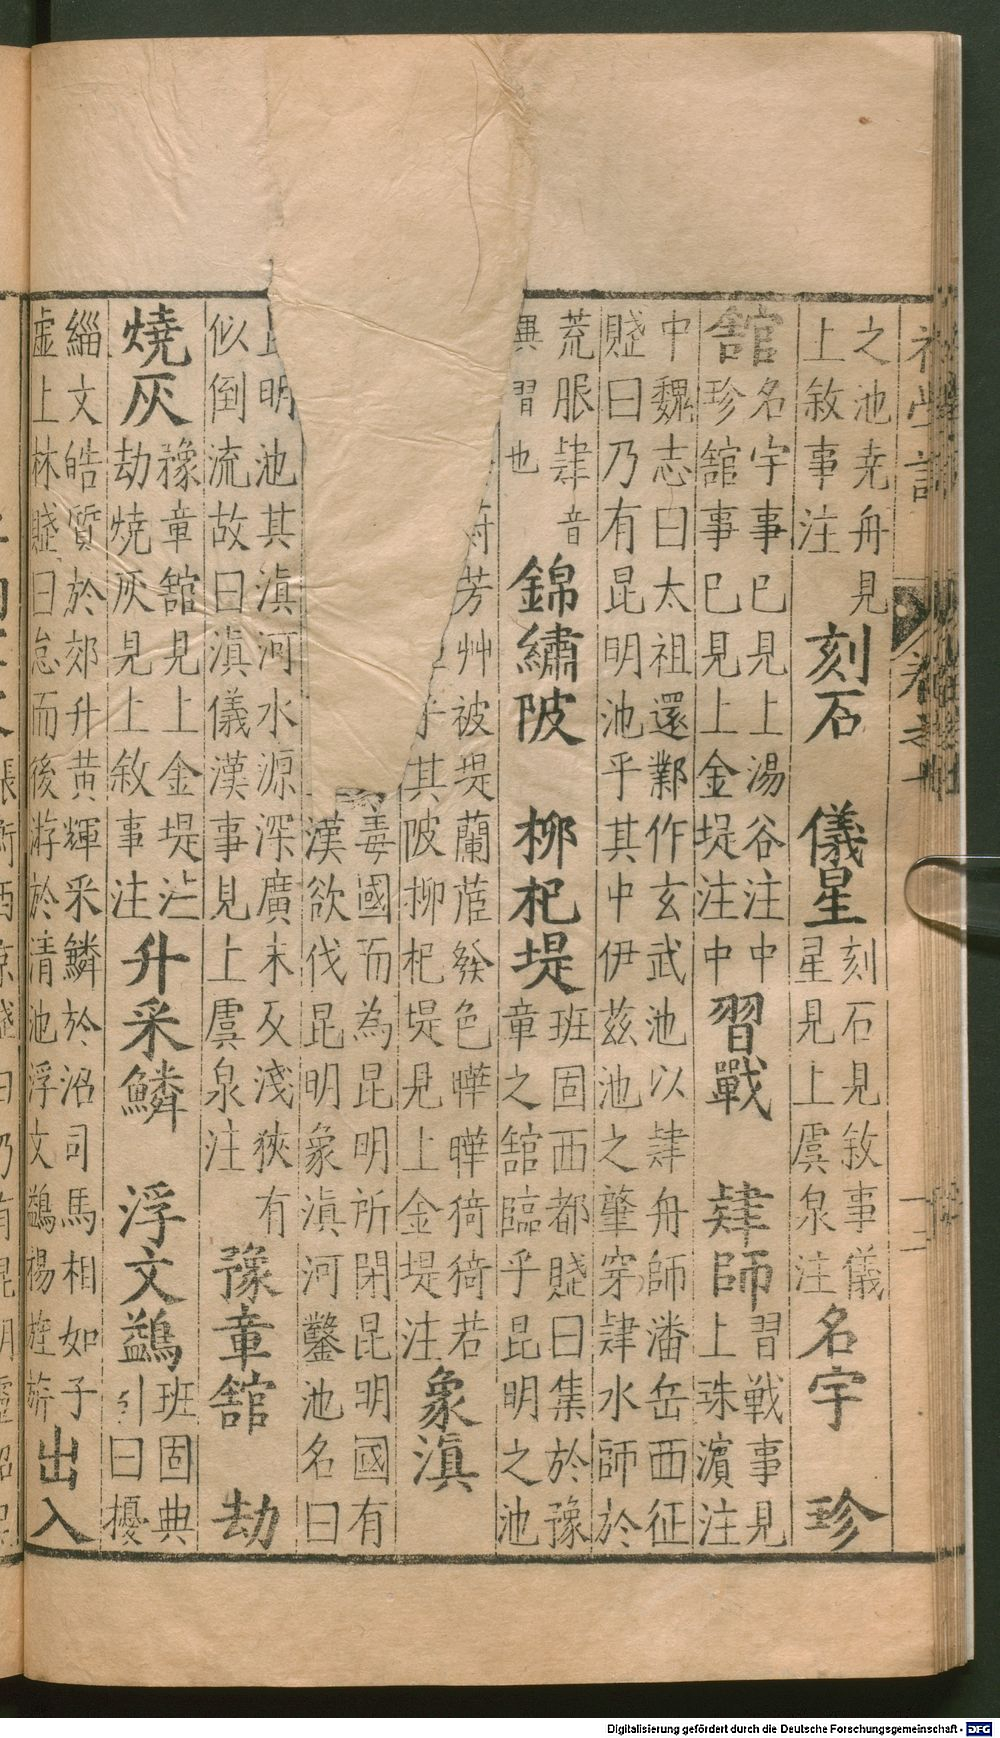 之池堯舟見
上敘事注
刻石 儀星
刻石見敘事儀
星見上虞泉注
名宇 珍
館
名宇事巳見上湯谷注中
珍館事巳見上金堤注中
習戰 肄師
習戰事見
上珠濱注
中魏志曰太祖還鄴作玄武池以肄舟師潘岳西征
賤曰乃有昆明池乎其中伊茲池之肇穿肄水師於
荒服肄音
異習也
錦繡陂 柳杞堤
班固西都賤曰集於豫
章之館臨乎昆明之池
芳艸被堤蘭茝發色曄曄猗猗若
其陂柳杞堤見上金堤注
象滇
毒國而為昆明所閉昆明國有
漢欲伐昆明象滇河鑿池名曰
明池其滇河水源深廣末及淺狹有
似倒流故曰滇儀漢事見上虞泉注
豫章館 劫
燒灰
豫章館見上金堤注
劫燒灰見上敘事注
升采鱗 浮文鷁
班固典
引曰擾
緇文皓質於郊升黃輝采鱗於沼司馬相如子
虛上林賤曰怠而後游於清池浮文鷁楊旌
出入
Digitalisierung gefördert durch die Deutsche Forschungsgemeinschaft - DFG